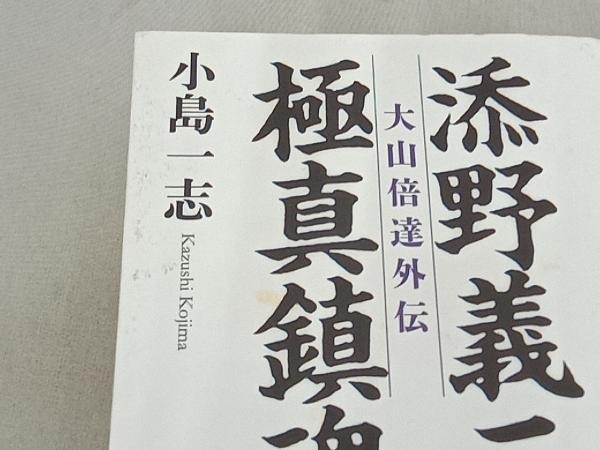 添野義
大山倍達外伝
極真鎮
小島一志
Kazushi Kojima